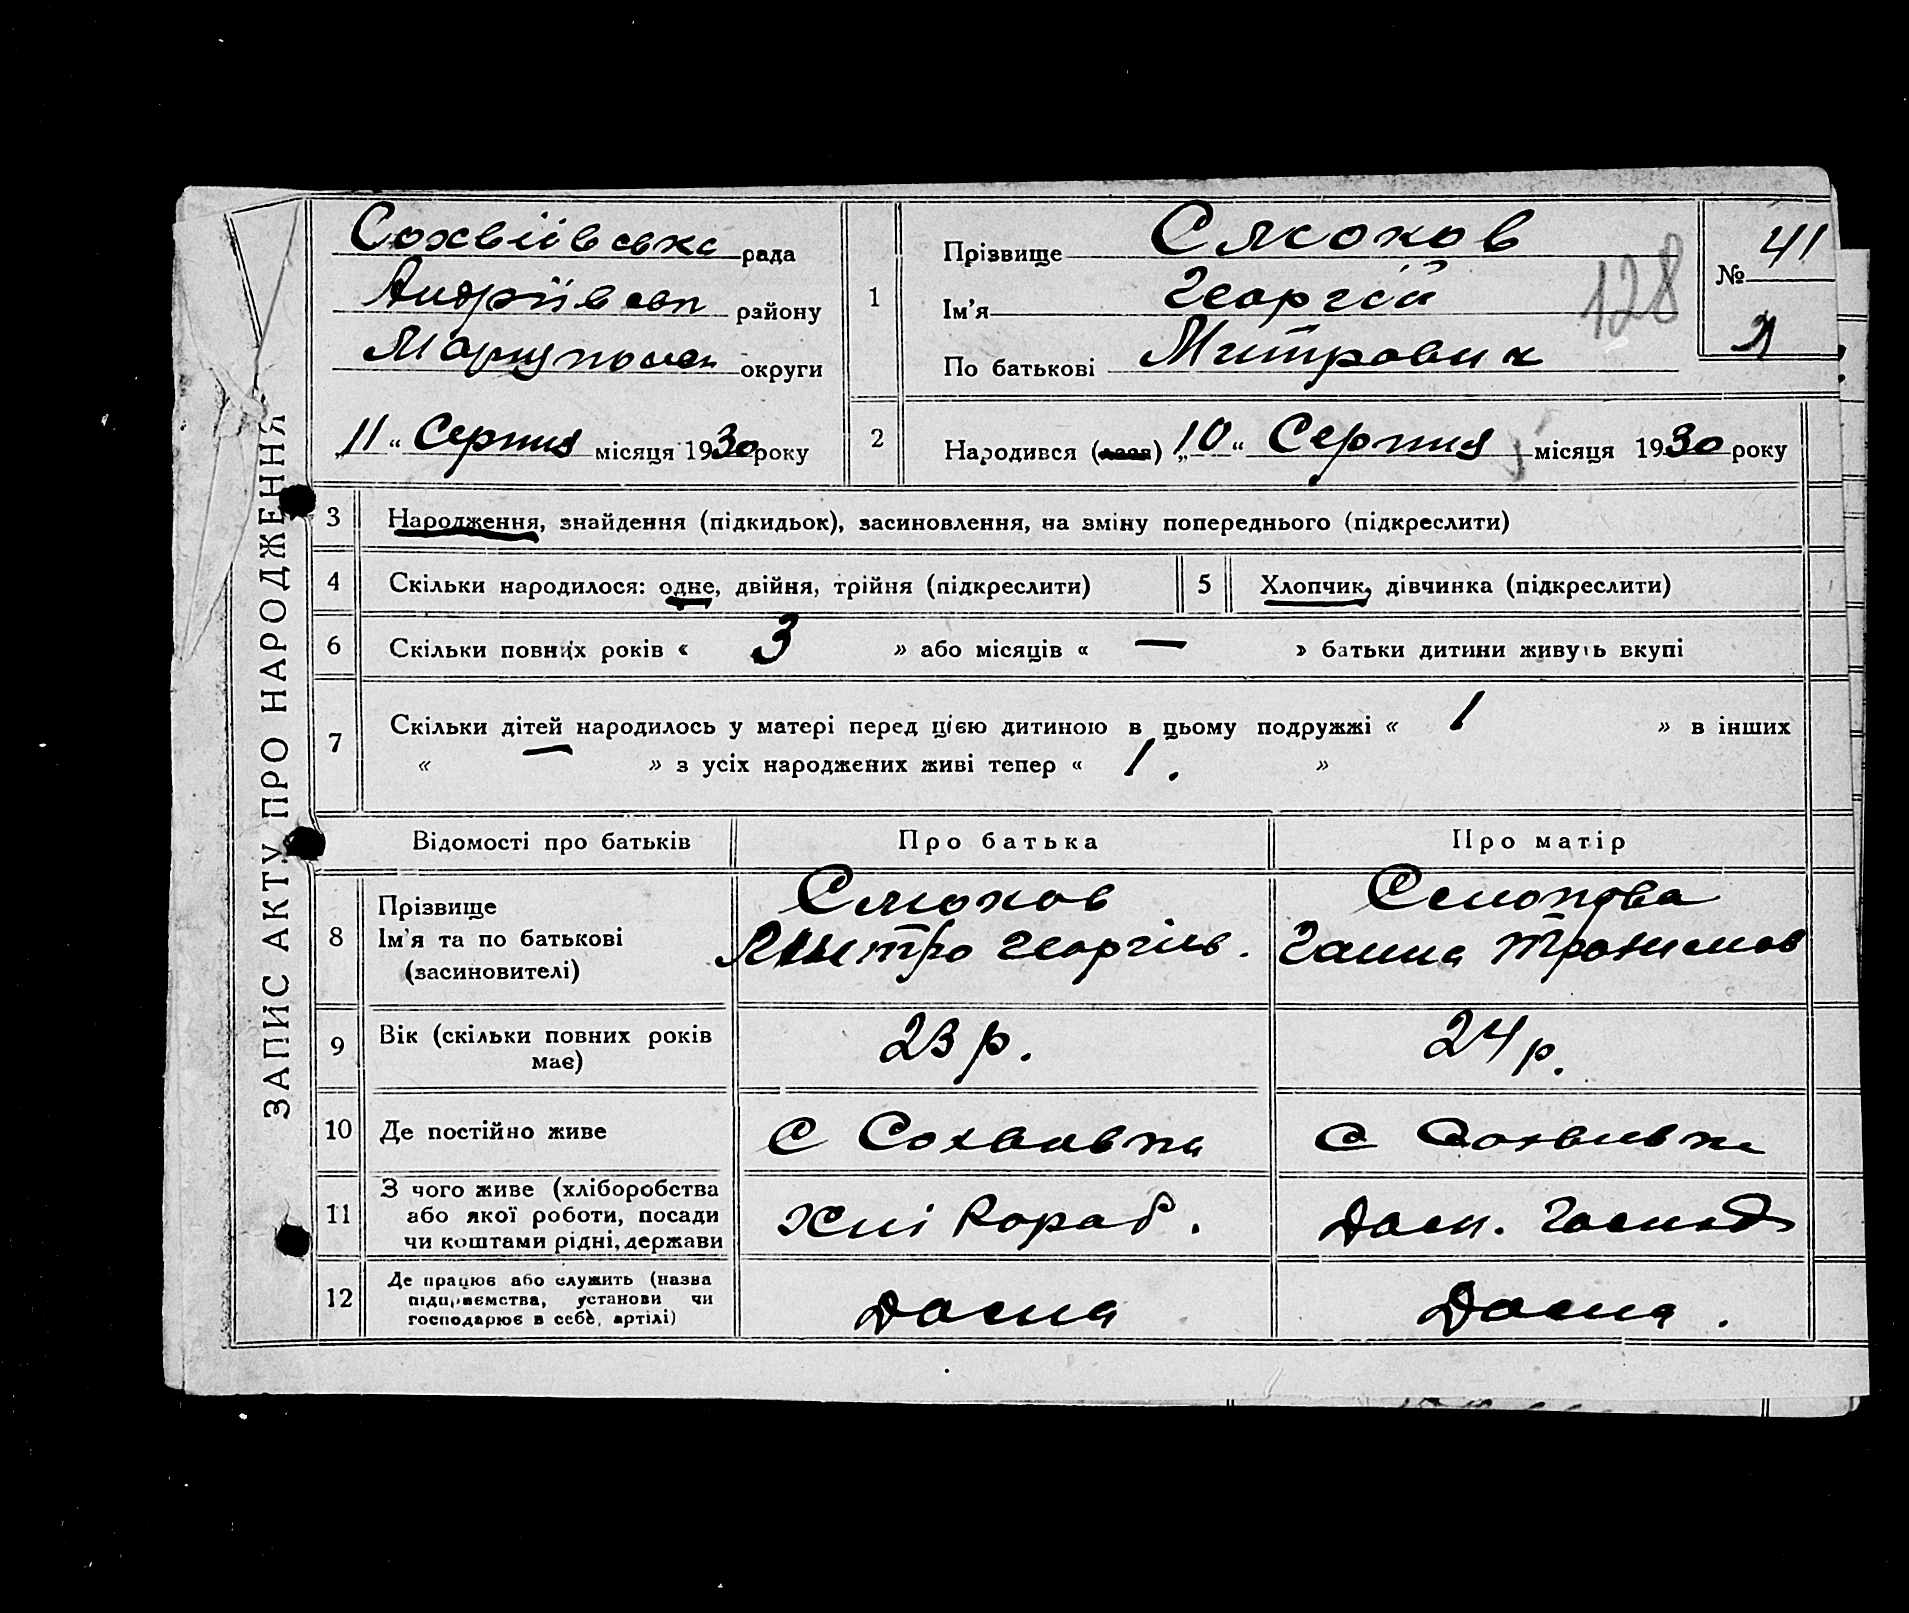 ЗАПИС АКТУ ПРО НАРОДЖЕННЯ
Сохвіївська рада
Андріївськ району
Маріупольськ округи
„11“ Серпня місяця 1930 року
1
Прізвище Смоков
Ім’я Георгій
По батькові Митрович
128
№ 41
2
Народився (лася) „10“ Серпня місяця 1930 року
3 Народження, знайдення (підкидьок), засиновлення, на зміну попереднього (підкреслити)
4 Скільки народилося: одне, двійня, трійня (підкреслити)
5 Хлопчик, дівчинка (підкреслити)
6 Скільки повних років « 3 » або місяців « — » батьки дитини живуть вкупі
7 Скільки дітей народилось у матері перед цією дитиною в цьому подружжі « 1 » в інших
« — » з усіх народжених живі тепер « 1. »
Відомості про батьків Про батька Про матір
8
Прізвище
Ім’я та по батькові
(засиновителі)
Смоков
Митро Георгієв.
Смокова
Ганна Трохимов
9
Вік (скільки повних років
має)
23 р.
24 р.
10 Де постійно живе
С Сохвіївка
С Сохвіївка
11
З чого живе (хліборобства
або якої роботи, посади
чи коштами рідні, держави
Хліборороб.
Дом. Господ
12
Де працює або служить (назва
підприємства, установи чи
господарює в себе, артілі)
Дома
Дома.